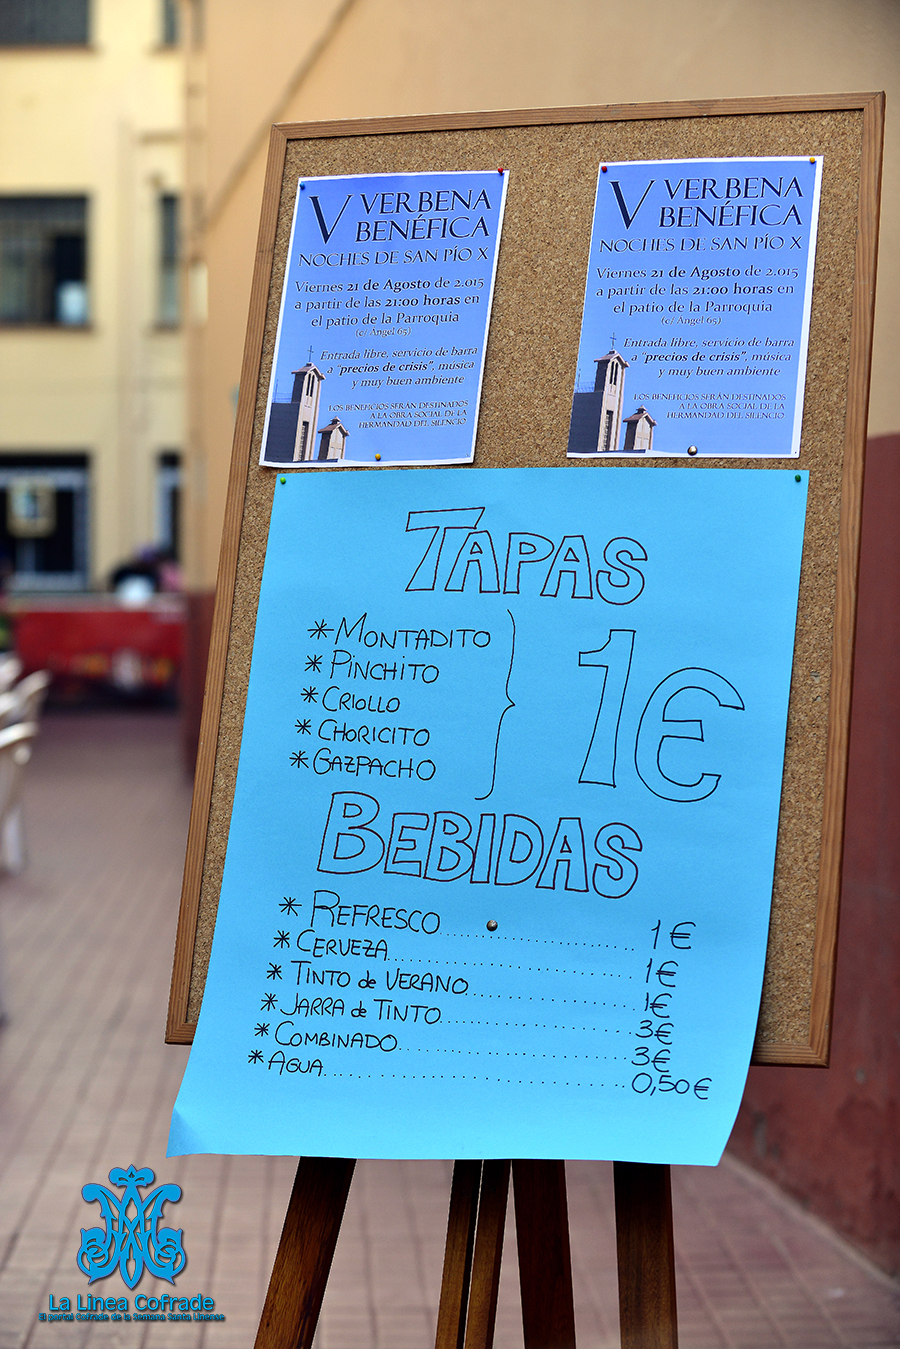 V VERBENA
BENÉFICA
NOCHES DE SAN PÍO X
Viernes 21 de Agosto de 2.015
a partir de las 21:00 horas en
el patio de la Parroquia
(c/ Ángel 65)
Entrada libre, servicio de barra
a "precios de crisis", música
y muy buen ambiente
LOS BENEFICIOS SERÁN DESTINADOS
A LA OBRA SOCIAL DE LA
HERMANDAD DEL SILENCIO
V VERBENA
BENÉFICA
NOCHES DE SAN PÍO X
Viernes 21 de Agosto de 2.015
a partir de las 21:00 horas en
el patio de la Parroquia
(c/ Ángel 65)
Entrada libre, servicio de barra
a "precios de crisis", música
y muy buen ambiente
LOS BENEFICIOS SERÁN DESTINADOS
A LA OBRA SOCIAL DE LA
HERMANDAD DEL SILENCIO
TAPAS
* MONTADITO
* PINCHITO
* CRIOLLO
* CHORICITO
* GAZPACHO
1€
BEBIDAS
* REFRESCO.................... 1€
* CERVEZA.................... 1€
* TINTO de VERANO.................... 1€
* JARRA de TINTO.................... 3€
* COMBINADO.................... 3€
* AGUA.................... 0,50€
La Linea Cofrade
El portal Cofrade de la Semana Santa Linense